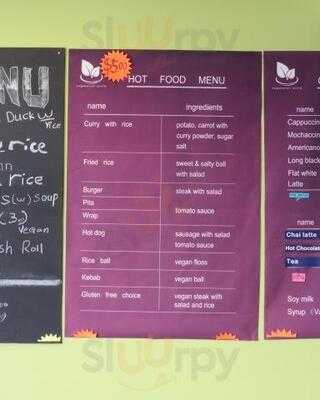 Sluurpy
NU
Duck w
Rice
rice
rice
S(w) Soup
(3,)
Vegan
sh Roll
$5.0
HOT FOOD MENU
name ingredients
Curry with rice potato, carrot with
curry powder, sugar
salt
Fried rice sweet & salty ball
with salad
Burger steak with salad
Pita
tomato sauce
Wrap
Hot dog sausage with salad
tomato sauce
Rice ball vegan floss
Kebab vegan ball
Gluten free choice vegan steak with
salad and rice
name
Cappuccin
Mochaccin
Americano
Long black
Flat white
Latte
name
Chai latte
Hot Chocolat
Tea
Soy milk
Syrup (Va
Sluurpy